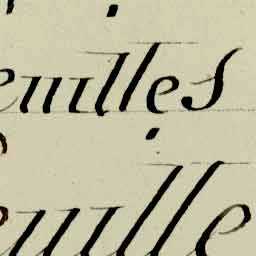 euilles
euille